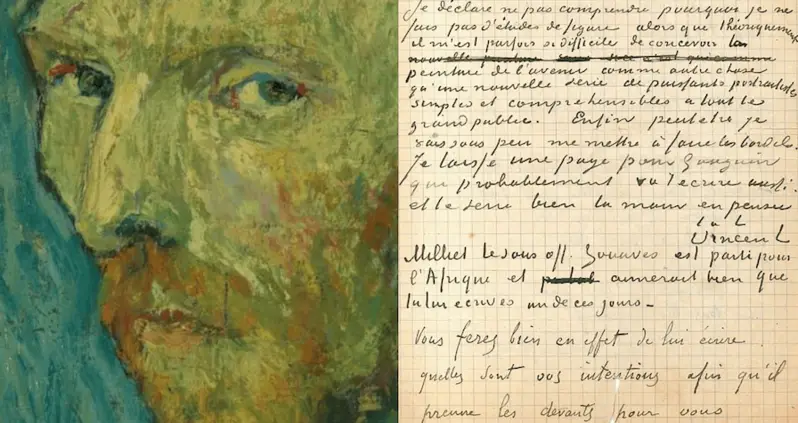 Je déclare ne pas comprendre pourquoi je ne
fais pas d'études de figure alors que théoriquement
il m'est parfois si difficile de concevoir la
peinture de l'avenir comme autre chose
qu'une nouvelle serie de puissants portraitistes
simples et comprehensibles a tout le
grand public. Enfin peutetre je
vais sous peu me mettre à faire les bordels.
Je laisse une page pour Gauguin
qui probablement va t'ecrire aussi.
et te serre bien la main en pensée
t à t
Vincent
Milliet le sous off. Zouaves est parti pour
l'Afrique et aimerait bien que
tu lui ecrives un de ces jours –
Vous ferez bien en effet de lui écrire
quelles sont vos intentions afin qu'il
prenne les devants pour vous